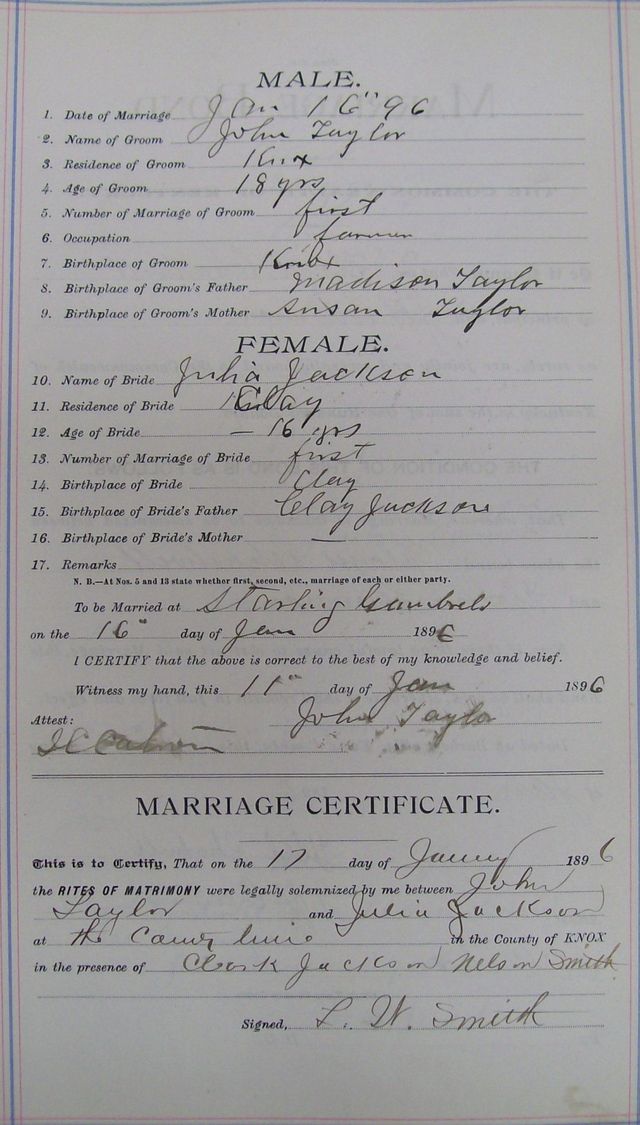 MALE.
1. Date of Marriage Jan 16" 96
2. Name of Groom John Taylor
3. Residence of Groom Knox
4. Age of Groom 18 yrs
5. Number of Marriage of Groom first
6. Occupation farmer
7. Birthplace of Groom Knox
8. Birthplace of Groom's Father Madison Taylor
9. Birthplace of Groom's Mother Susan Taylor
FEMALE.
10. Name of Bride Julia Jackson
11. Residence of Bride Clay
12. Age of Bride — 16 yrs
13. Number of Marriage of Bride first
14. Birthplace of Bride Clay
15. Birthplace of Bride's Father Clay Jackson
16. Birthplace of Bride's Mother —
17. Remarks
N. B.—At Nos. 5 and 13 state whether first, second, etc., marriage of each or either party.
To be Married at Starling Gambrels
on the 16" day of Jan 1896
I CERTIFY that the above is correct to the best of my knowledge and belief.
Witness my hand, this 11" day of Jan 1896
Attest: John Taylor
MARRIAGE CERTIFICATE.
This is to Certify, That on the 17 day of 1896
the RITES OF MATRIMONY were legally solemnized by me between John
Taylor and Julia Jackson
at the line in the County of KNOX
in the presence of Clark Jackson Nelson Smith
Signed, L. W. Smith